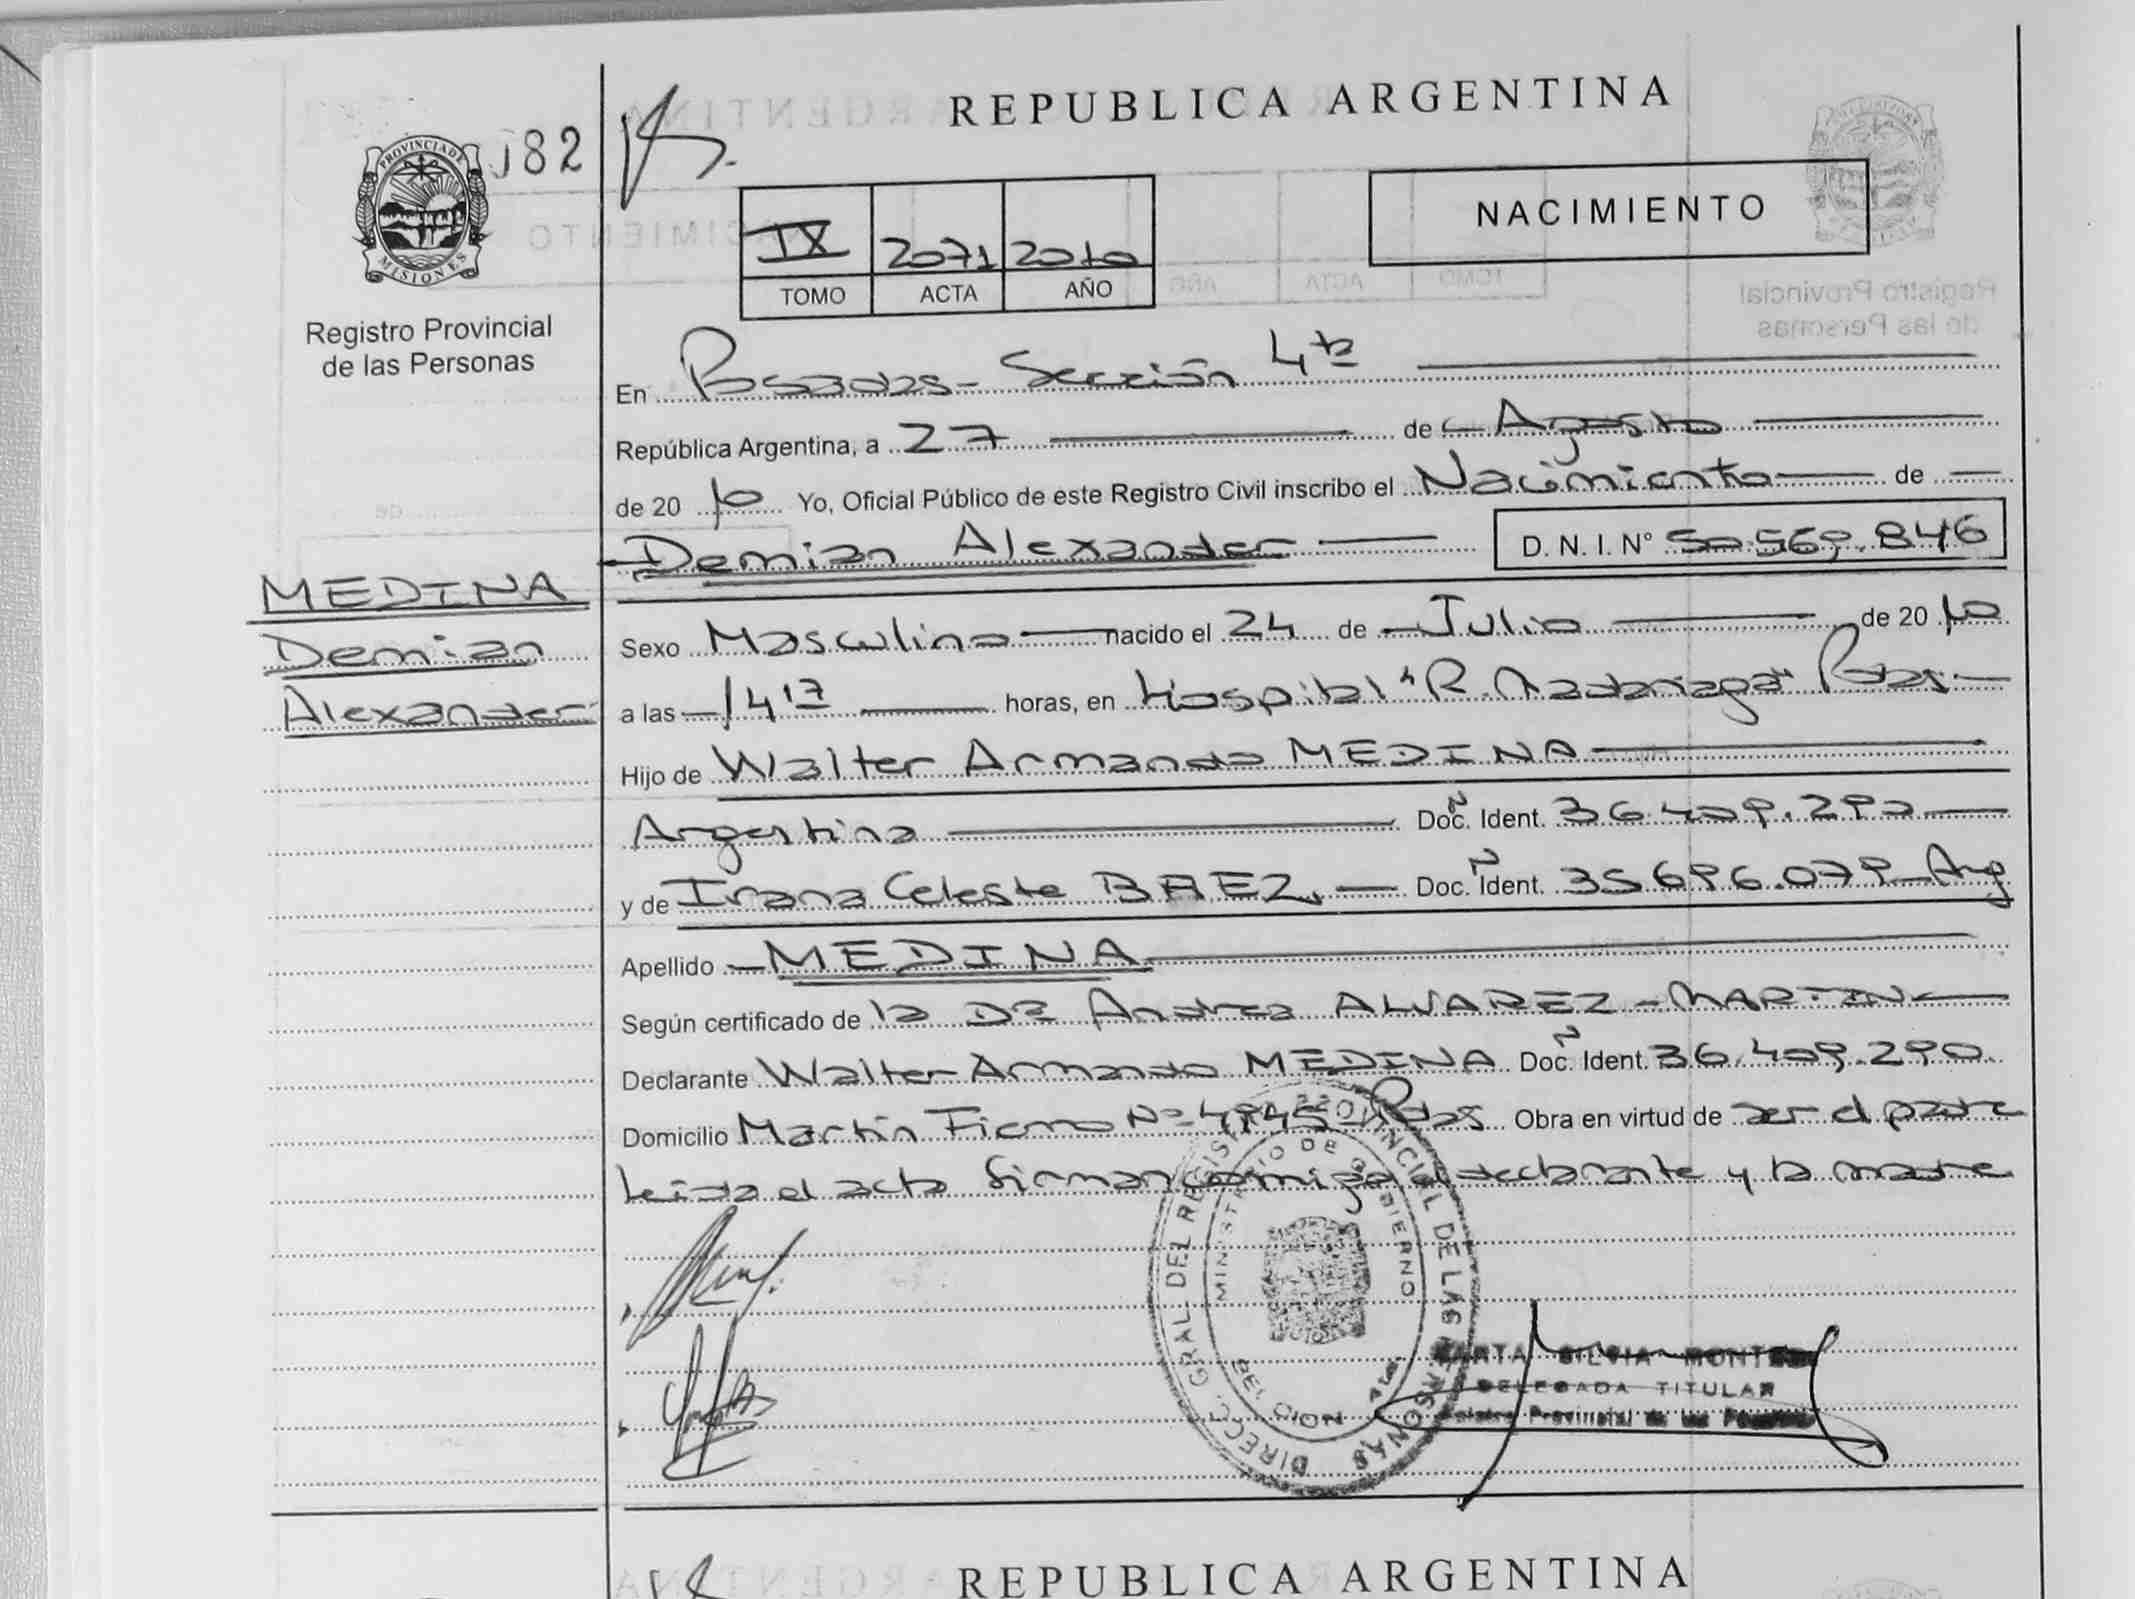 REPUBLICA ARGENTINA
PROVINCIA DE
MISIONES
82
Registro Provincial
de las Personas
NACIMIENTO
IX 2071 2010
TOMO ACTA AÑO
En Posadas - Sección 4ta
República Argentina, a 27 de Agosto
de 2010 Yo, Oficial Público de este Registro Civil inscribo el Nacimiento de
Demian Alexander D. N. I. N° 50.569.846
MEDINA
Demian
Alexander
Sexo Masculino nacido el 24 de Julio de 2010
a las 14 17 horas, en Hospital "R. Madariaga" Pdas.
Hijo de Walter Armando MEDINA
Argentino Doc. Ident. 36.409.290
y de Ivana Celeste BAEZ Doc. Ident. 35.696.079 Arg
Apellido MEDINA
Según certificado de la Dra Andrea ALVAREZ - MARTIN
Declarante Walter Armando MEDINA Doc. Ident. 36.409.290
Domicilio Martin Fierro Nº Pdas Obra en virtud de ser el padre
Leida el acta firman conmigo el declarante y la madre
DIRECC. GRAL DEL REGIS PROVINCIAL DE LAS PERSONAS
MINISTERIO DE GOBIERNO
SILVIA MONTE
DELEGADA TITULAR
Registro Provincial de las Personas
REPUBLICA ARGENTINA